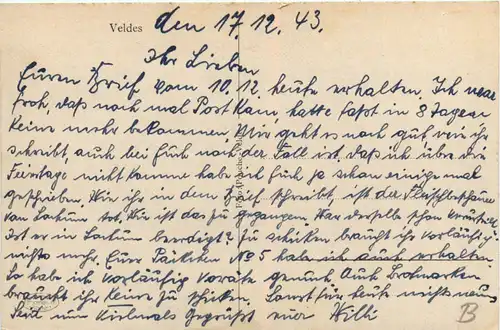 Veldes den 17.12.43.
Ihr Lieben
Euren Brief vom 10.12. heute erhalten. Ich war
froh, daß noch mal Post kam, hatte faßt in 8 Tagen
keine mehr bekommen Mir geht es noch gut wie ihr
schreibt, auch bei Euch noch der Fall ist, daß ich über die
Feiertage nicht komme habe ich Euch ja schon einige mal
geschrieben. Wie ihr in dem Brief schreibt, ist der
von Lockum tot. Wie ist das zu gegangen. War derselbe schon
Ist er in Lockum beerdigt? Zu schicken braucht ihr vorläufig
nichts mehr. Euer Päckchen No 5 habe ich auch erhalten
So habe ich vorläufig Voräte genuch. Auch Brotmarken
braucht ihr keine zu schicken. Sonst für heute nichts neues
Seid nun vielmals Gegrüßt euer Willi
B